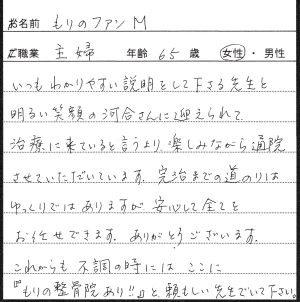 お名前 もりのファンM
ご職業 主婦 年齢 65 歳 女性・男性
いつもわかりやすい説明をして下さる先生と
明るい笑顔の河合さんに迎えられて
治療に来ていると言うより楽しみながら通院
させていただいています。完治までの道のりは
ゆっくりではありますが安心して全てを
お任せできます。ありがとうございます。
これからも不調の時には ここに
『もりの整骨院あり!!』と頼もしい先生でいて下さい。